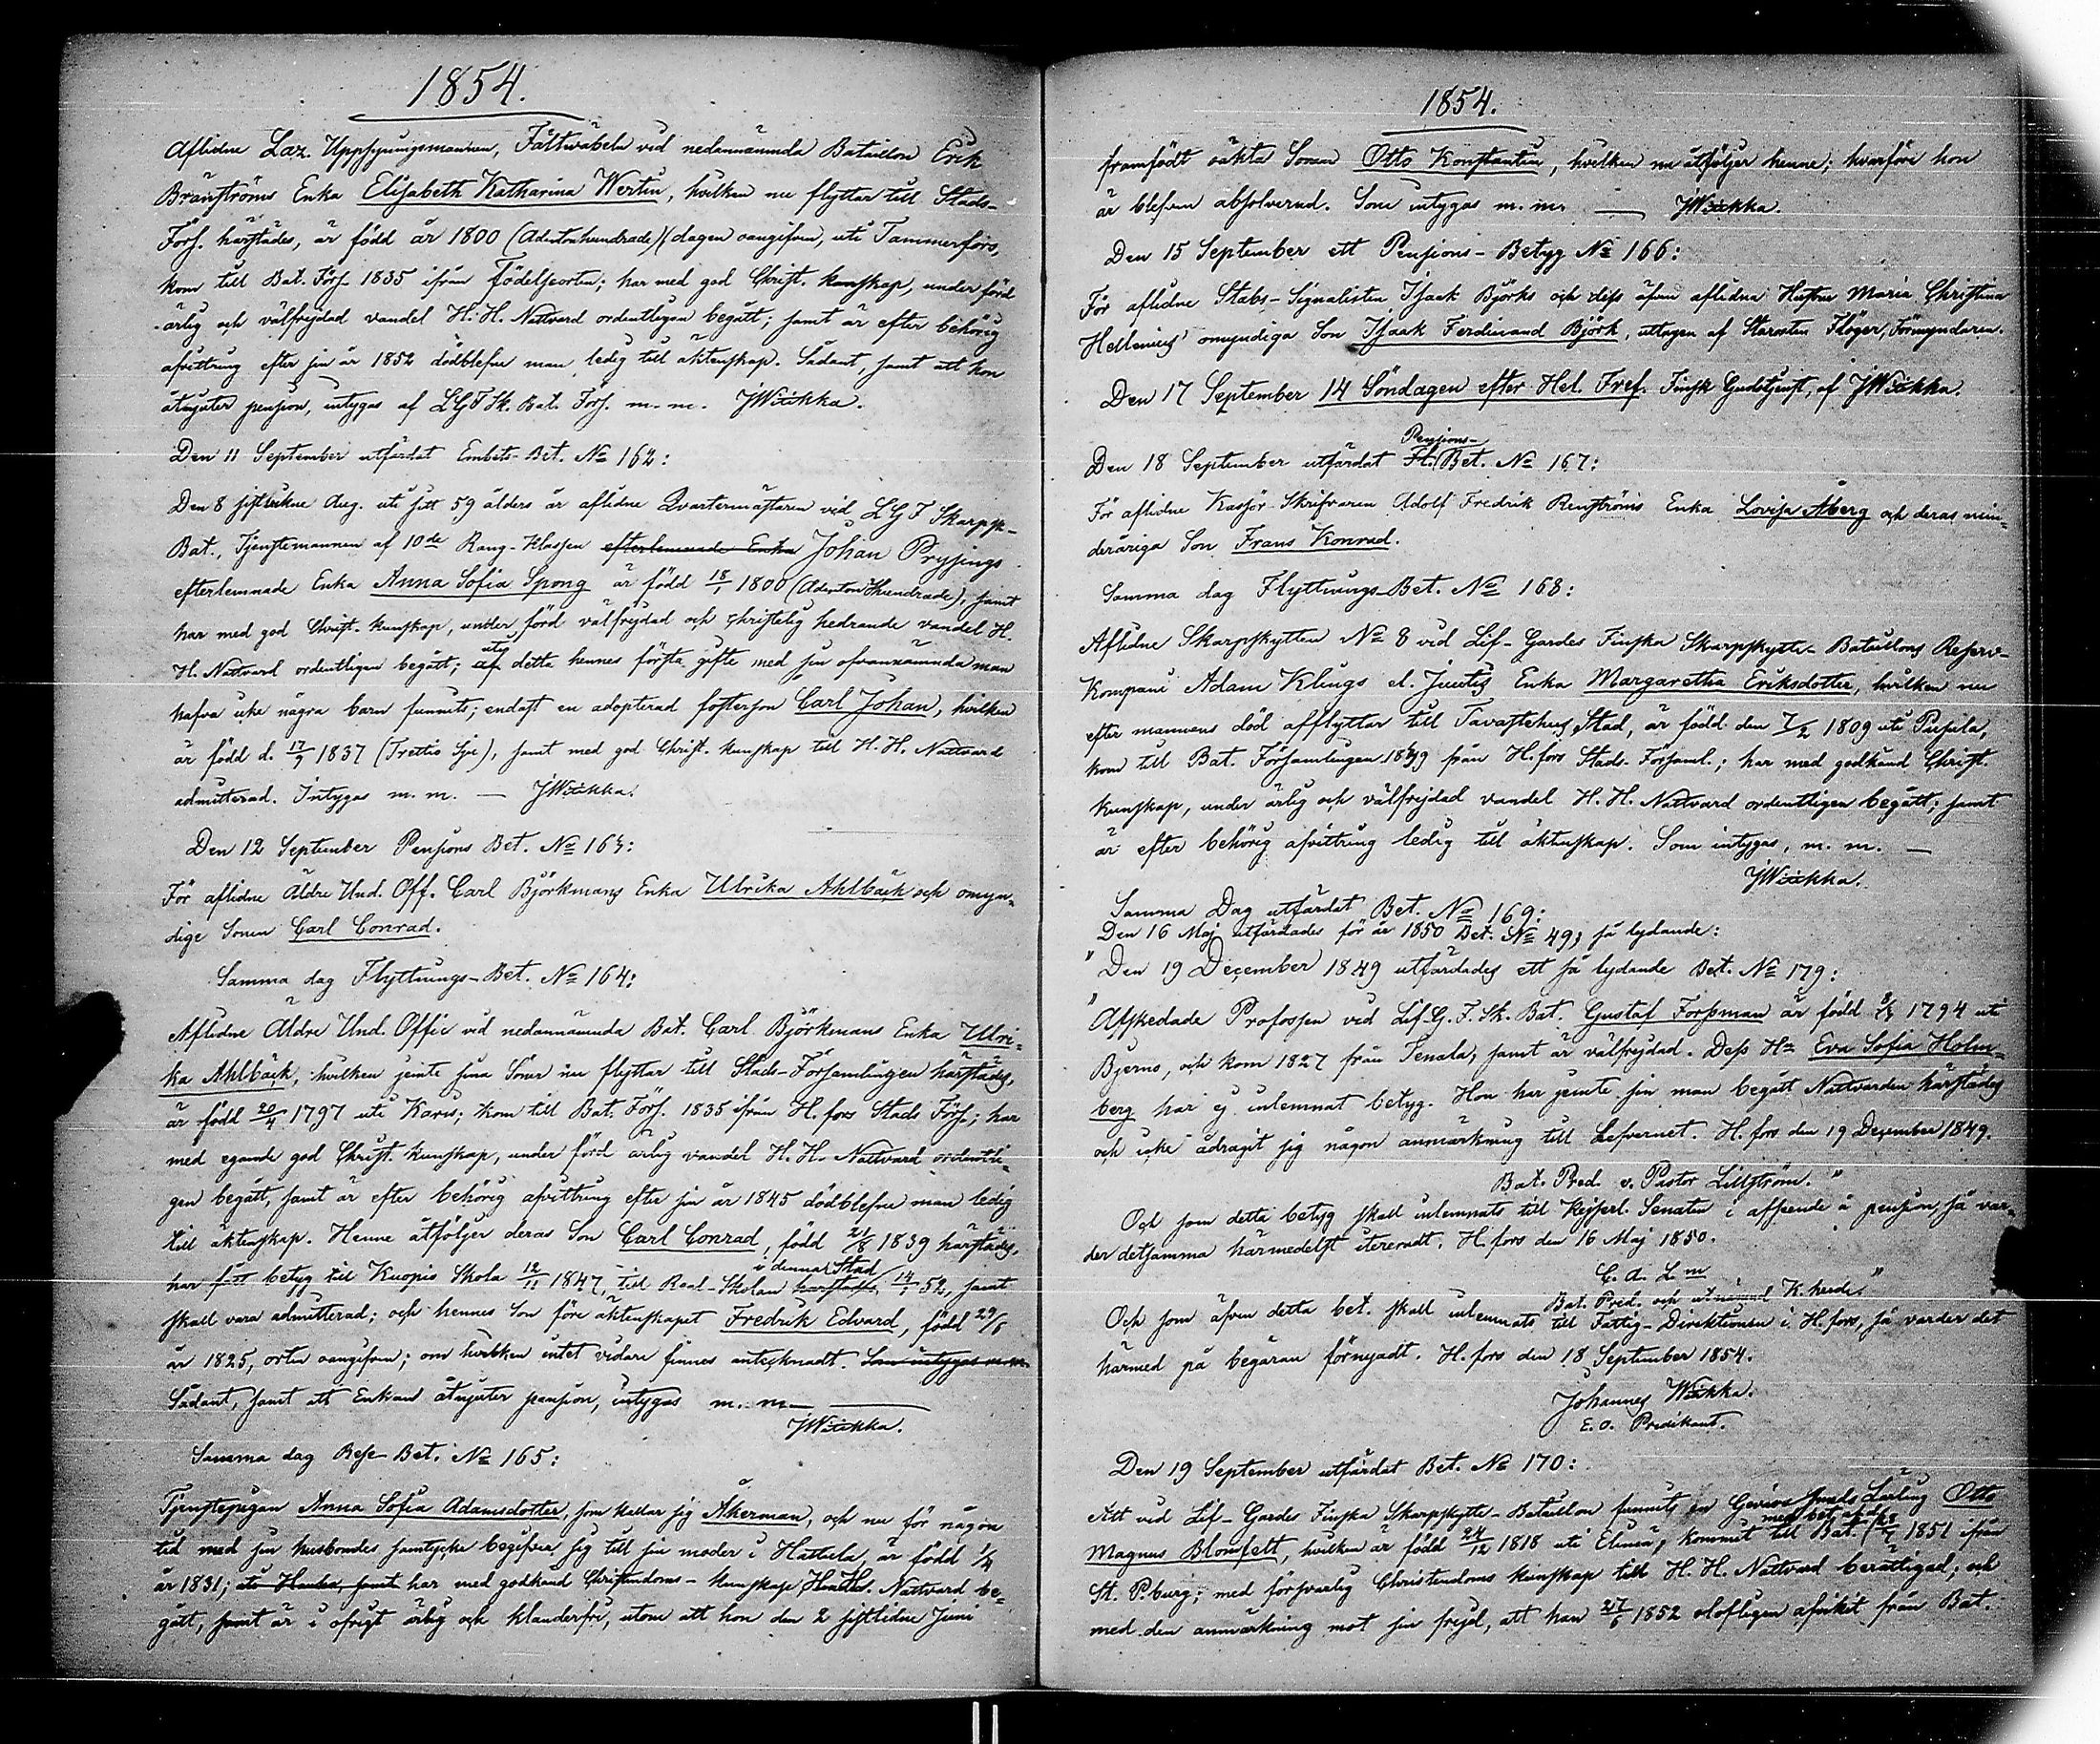 1854.
Aflidne Laz. Uppsyningsmannen, Fältwäbeln vid nedannämnda Bataillon Erik
Bränströms Enka Elisabeth Katharina Wertin, hvilken nu flyttar till Stads-
Förs. härstädes, är född år 1800 (Adertonhundrade) (dagen oangifven, uti Tammerfors,
kom till Bat. Förs. 1835 ifrån födelseorten; har med god Christ. kunskap, under förd
ärlig och välfrejdad vandel H. H. Nattvard ordentligen begått; samt är efter behörig
afvittring efter sin år 1852 dödblefne man, ledig till äktenskap. Sådant, samt att hon
åtnjuter pension, intygas af LGFSk. Bat. Förs. m. m. JWiikka.
Den 11 September utfärdat Embets-Bet. No 162:
Den 8 sistlidne Aug. uti sitt 59 ålders år aflidne Qvartermästaren vid LGF Skarpsk-
Bat., Tjenstemannen af 10de Rang-Klassen efterlemnade Enka Johan Pryssings
efterlemnade Enka Anna Sofia Spong är född 18/1 1800 (Aderton Hundrade), samt
har med god Christ. kunskap, under förd välfrejdad och christelig hedrande vandel H.
H. Nattvard ordentligen begått; uti
af detta hennes första gifte med sin ofvannämnda man
hafva icke några barn funnits; endast en adopterad fosterson Carl Johan, hvilken
är född d. 17/7 1837 (Trettio Sju), samt med god Christ. kunskap till H. H. Nattvard
admitterad. Intygas m. m. — JWiikka.
Den 12 September Pensions Bet. No 163:
För aflidne Äldre Und. Off. Carl Björkmans Enka Ulrika Ahlbäck och omyn-
dige Sonen Carl Conrad.
Samma dag Flyttnings-Bet. No 164:
Aflidne Äldre Und. Offic vid nedannämnda Bat. Carl Björkmans Enka Ulri-
ka Ahlbäck, hvilken jemte sina Söner nu flyttar till Stads-Församlingen härstädes,
är född 20/4 1797 uti Karis; kom till Bat. Förs. 1835 ifrån H.fors Stads Förs.; har
med egande god Christ. kunskap, under förd ärlig vandel H. H. Nattvard ordentli-
gen begått, samt är efter behörig afvittring efter sin år 1845 dödblefne man ledig
till äktenskap. Henne åtföljer deras Son Carl Conrad, född 21/8 1839 härstädes,
i denna Stad
har fått betyg till Kuopio Skola 12/11 1847, till Real-Skolan härstädes, 14/1 52, samt
skall vara admitterad; och hennes Son före äktenskapet Fredrik Edvard, född 29/6
år 1825, orten oangifven; om hvilken intet vidare finnes antecknadt. Som intygas m.m.
Sådant, samt att Enkan åtnjuter pension, intygas m. m. —
JWiikka.
Samma dag Rese-Bet. No 165:
Tjenstepigan Anna Sofia Adamsdotter, som kallar sig Åkerman, och nu för någon
tid med sin husbondes samtycke begifver sig till sin moder i Hattula, är född 1/4
år 1831; uti Hauho, samt har med godkänd Christendoms-kunskap H. H. Nattvard be-
gått, samt är i öfrigt ärlig och klanderfri, utom att hon den 2 sistlidne Juni
1854.
framfödt oäkta Sonen Otto Konstantin, hvilken nu åtföljer henne; hvarföre hon
är blefven absolverad. Som intygas m. m. — JWiikka.
Den 15 September ett Pensions-Betyg No 166:
För aflidne Stabs-Signalisten Isaak Björks och dess äfven aflidna Hustru Maria Christina
Hellenius' omyndiga Son Isaak Ferdinand Björk, uttagen af Starosten Flöger, Förmyndaren.
Den 17 September 14 Söndagen efter Hel. Tref. Finsk Gudstjenst, af JWiikka.
Pensions-
Den 18 September utfärdat Fl. Bet. No 167:
För aflidne Kassör-Skrifvaren Adolf Fredrik Renströms Enka Lovisa Åberg och deras min-
deråriga Son Frans Konrad.
Samma dag Flyttnings-Bet. No 168:
Aflidne Skarpskytten No 8 vid Lif-Gardes Finska Skarpskytte-Bataillons Reserv-
Kompani Adam Klings el. Juutis Enka Margaretha Eriksdotter, hvilken nu
efter mannens död afflyttar till Tavastehus Stad, är född den 7/2 1809 uti
kom till Bat. Församlingen från H.fors Stads-Församl.; har med godkänd Christ.
kunskap, under ärlig och välfrejdad vandel H. H. Nattvard ordentligen begått; samt
är efter behörig afvittring ledig till äktenskap. Som intygas, m. m. —
JWiikka.
Samma Dag utfärdat Bet. No 169:
Den 16 Maj utfärdades för år 1850 Bet. No 49, så lydande:
"Den 19 December 1849 utfärdades ett så lydande Bet. No 179:
"Afskedade Profossen vid Lif.G.F.Sk.Bat. Gustaf Forsman är född 1794 uti
Bjerno, och kom 1827 från Tenala, samt är välfrejdad. Dess Hu Eva Sofia Holm-
berg har ej inlemnat betyg. Hon har jemte sin man begått Nattvarden härstädes
och icke ådragit sig någon anmärkning till Lefvernet. H.fors den 19 December 1849.
Bat. Pred. v. Pastor Lillström."
Och som detta betyg skall inlemnats till Kejserl. Senaten i afseende å pension, så var-
der detsamma härmedelst itereradt. H.fors den 16 Maj 1850.
C. A. L m
Bat. Pred. och utnämnd K.herde."
Och som äfven detta bet. skall inlemnats till Fattig-Direktionen i H.fors, så varder det
härmed på begäran förnyadt. H.fors den 18 September 1854.
Johannes Wiikka.
E. O. Predikant.
Den 19 September utfärdat Bet. No 170:
Att vid Lif-Gardes Finska Skarpskytte-Bataillon funnits en Gevärssmeds Lärling Otto
Magnus Blomfelt, hvilken är född 24/12 1818 uti Elimä, kommit till Bat. med bet. af d. 1851 ifrån
St. P.burg; med försvarlig Christendoms kunskap till H. H. Nattvard berättigad; och
med den anmärkning mot sin frejd, att han 27/6 1852 olofligen afvikit från Bat.